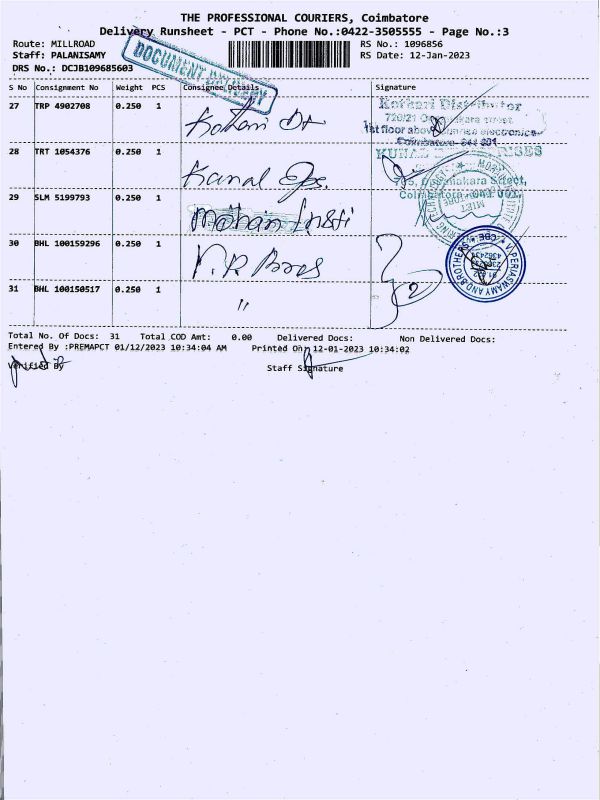 THE PROFESSIONAL COURIERS, Coimbatore
Delivery Runsheet - PCT - Phone No.:0422-3505555 - Page No.:3
Route: MILLROAD
RS No.: 1096856
Staff: PALANISAMY
RS Date: 12-Jan-2023
DRS No.: DCJB109685603
DOCUMENT DELIVERY
S No Consignment No Weight PCS Consignee Details Signature
27 TRP 4902708 0.250 1 Kothari
Kothari Distributor
720/21
1st floor above electronics
Coimbatore
28 TRT 1054376 0.250 1
Coimbatore
29 SLM 5199793 0.250 1 Mohan
30 BHL 100159296 0.250 1 P.R Bros
V. PERIASWAMY AND BROTHERS CBE.
31 BHL 100150517 0.250 1 "
2
Total No. Of Docs: 31 Total COD Amt: 0.00 Delivered Docs: Non Delivered Docs:
Entered By :PREMAPCT 01/12/2023 10:34:04 AM Printed On: 12-01-2023 10:34:02
Verified By
Staff Signature